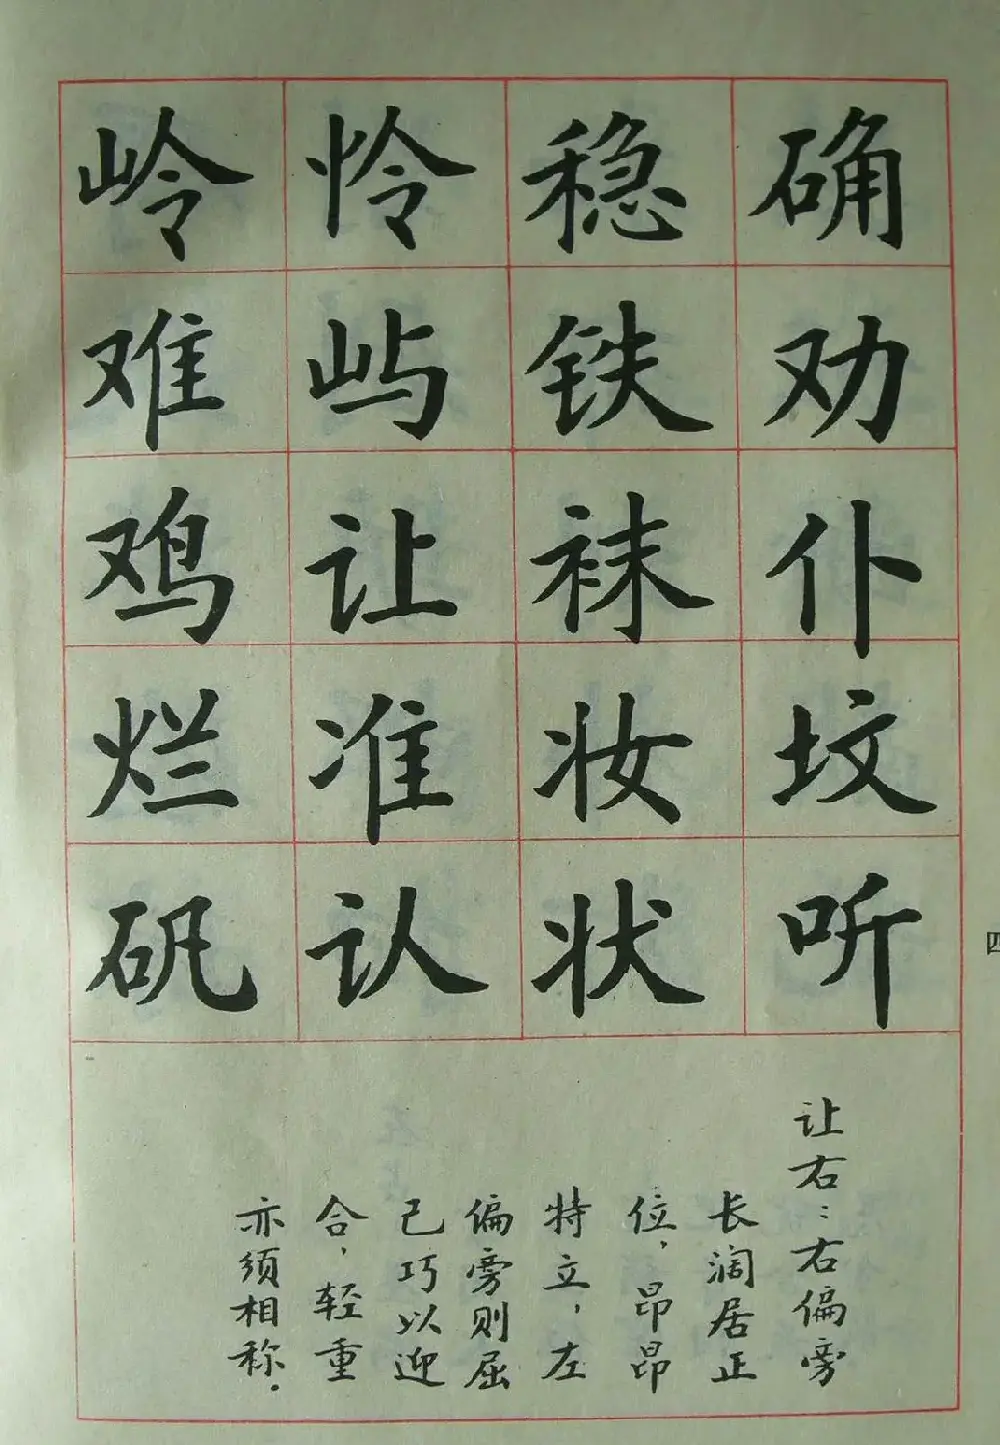 确劝仆坟听
稳铁袜妆状
怜屿让准认
岭难鸡烂矾
让右：右偏旁
长阔居正
位，昂昂
特立，左
偏旁则屈
己巧以迎
合，轻重
亦须相称．